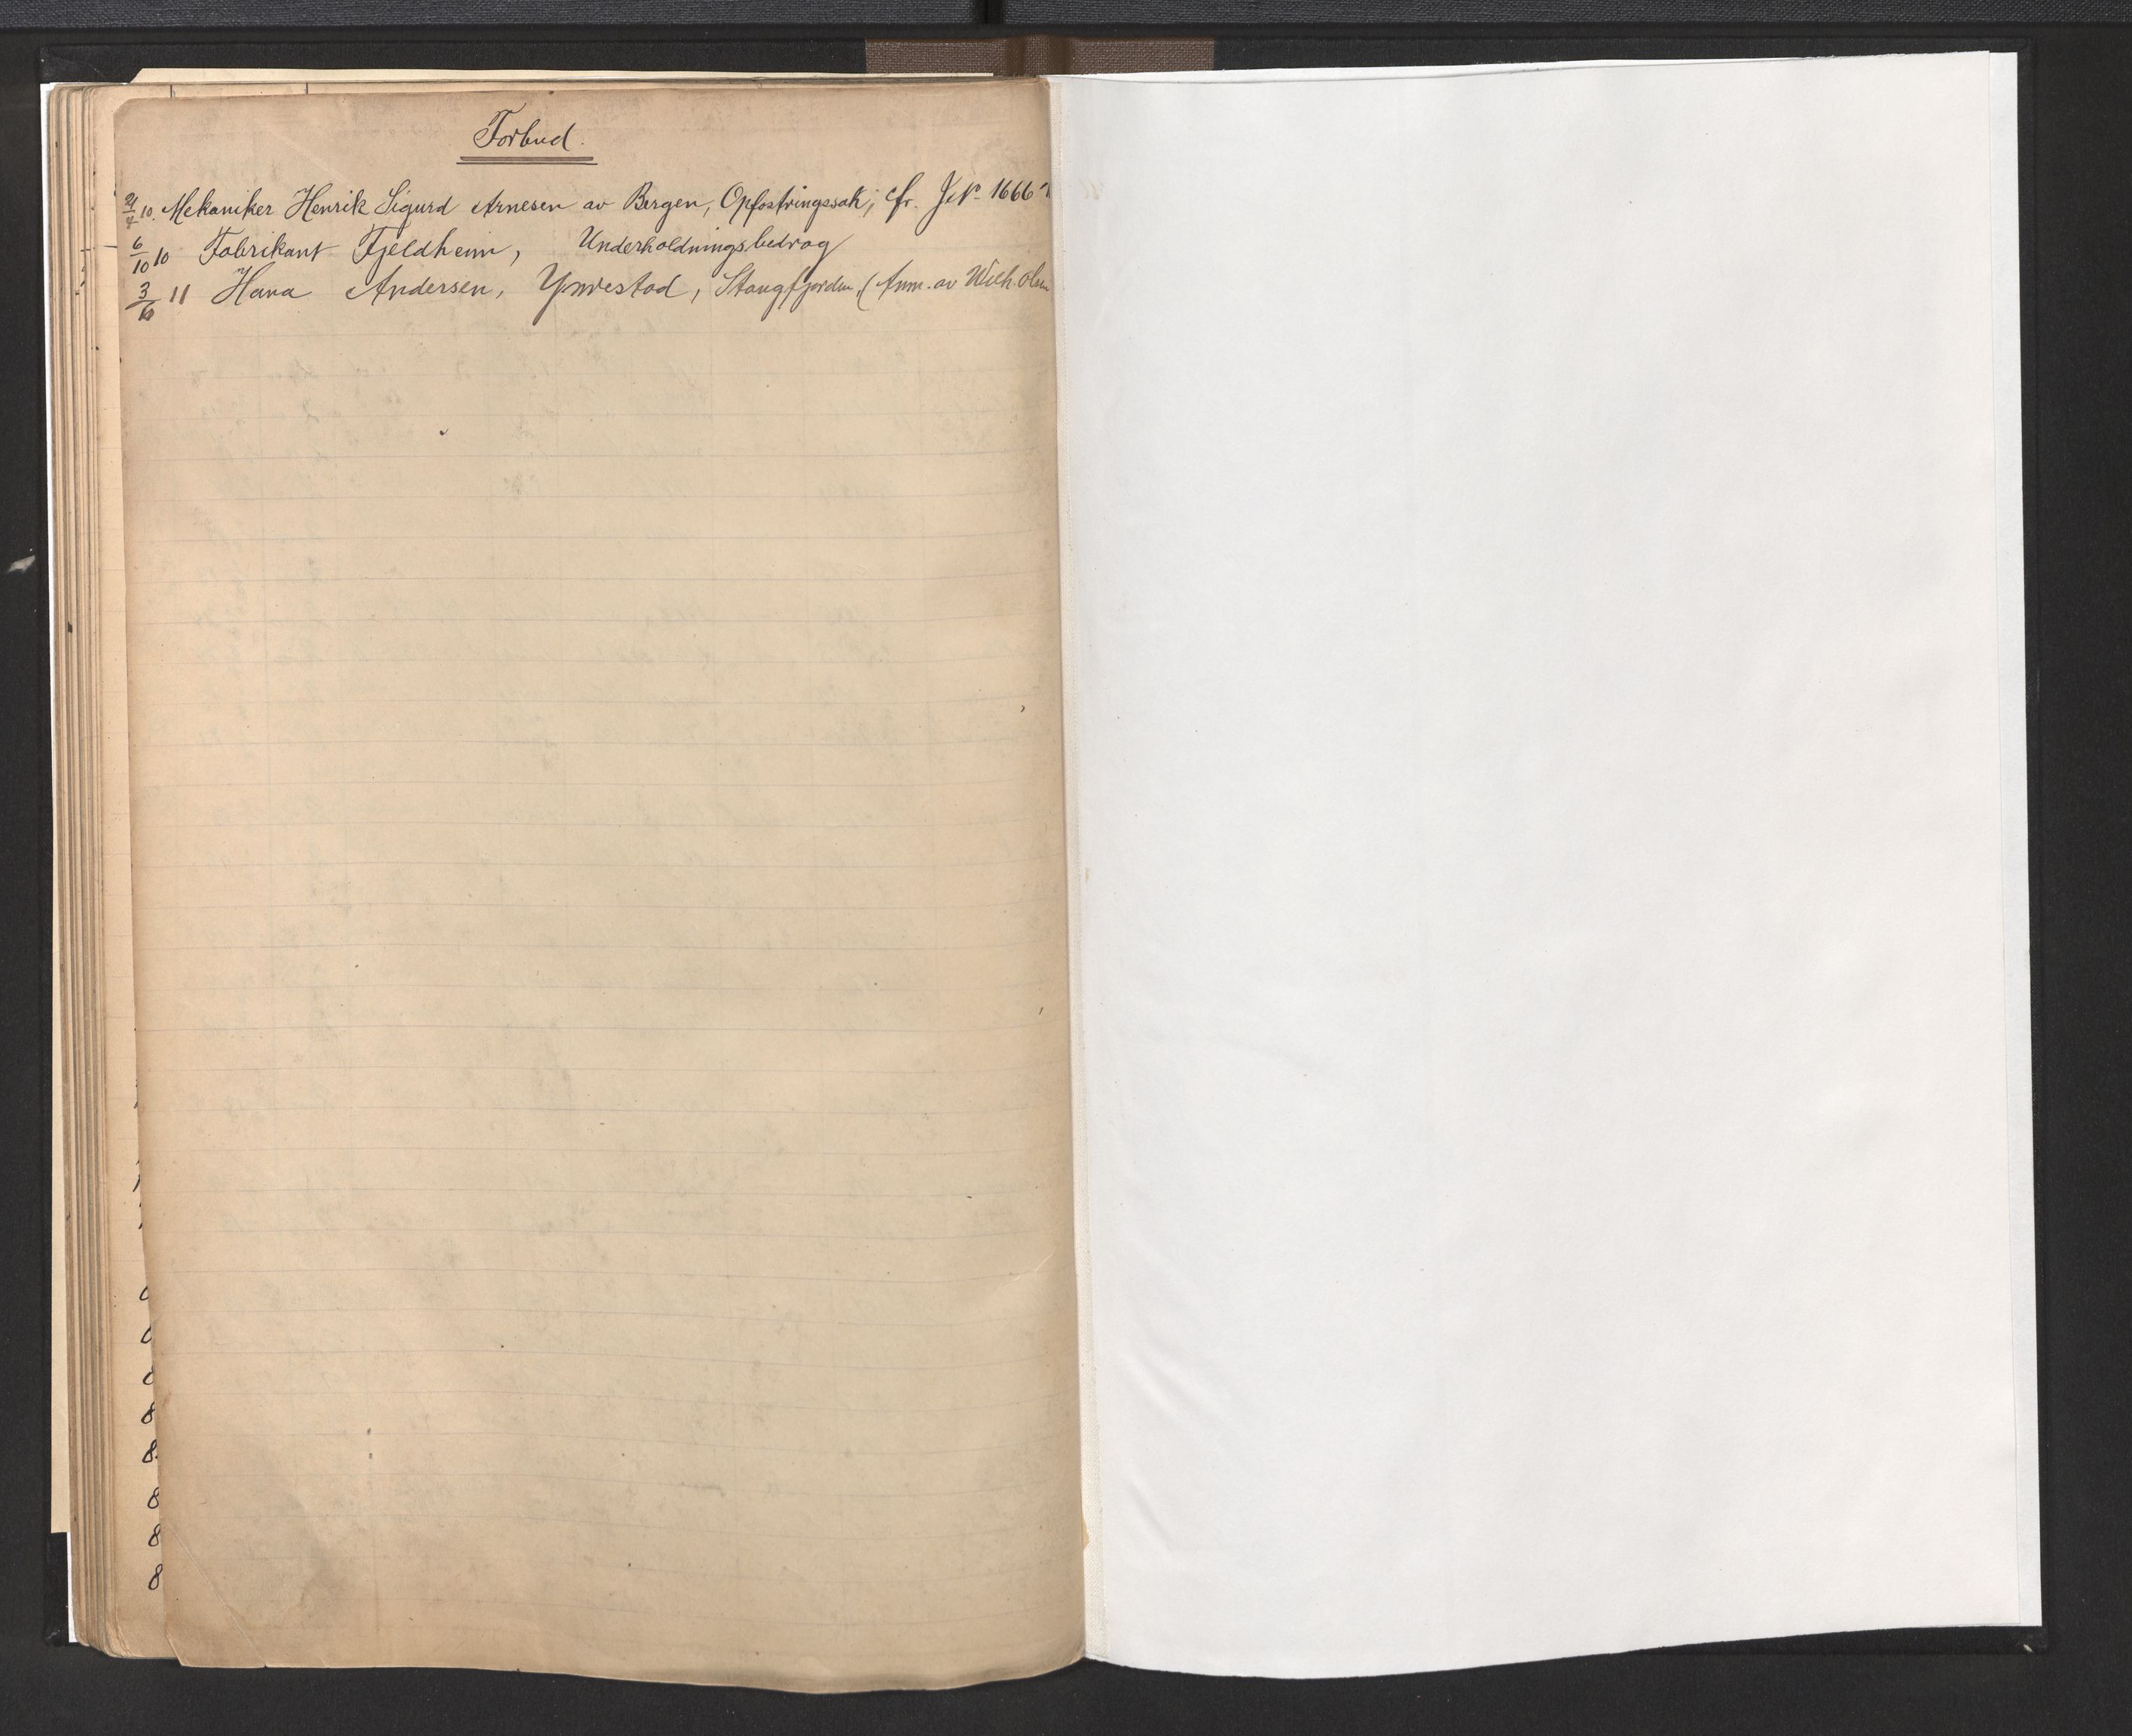 Forbud.
21/7 10. Mekaniker Henrik Sigurd Arnesen av Bergen, Opfostringssak; cfr. J.No. 1666
6/10 10 Fabrikant Fjeldheim, Underholdningsbedrag
3/6 11 Hana Andersen, Yndestad, Stangfjorden, (Anm. av Wilh. Olsen